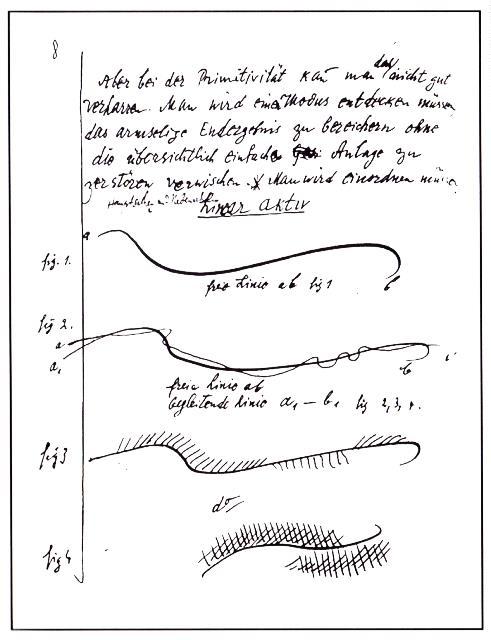 8
Aber bei der Primitivität kan̄ man das nicht gut
verharren. Man wird eine Modus entdecken müssen
das armselige Endergebnis zu bereichern ohne
die übersichtlich einfache Anlage zu
zerstören verwischen. Man wird einordnen müssen
linear aktiv
a
fig. 1.
freie Linie ab fig 1
b
fig 2.
a
a₁
b
freie Linie ab
begleitende Linie a₁ — b₁ fig 2, 3, 4.
fig 3
do
fig 4